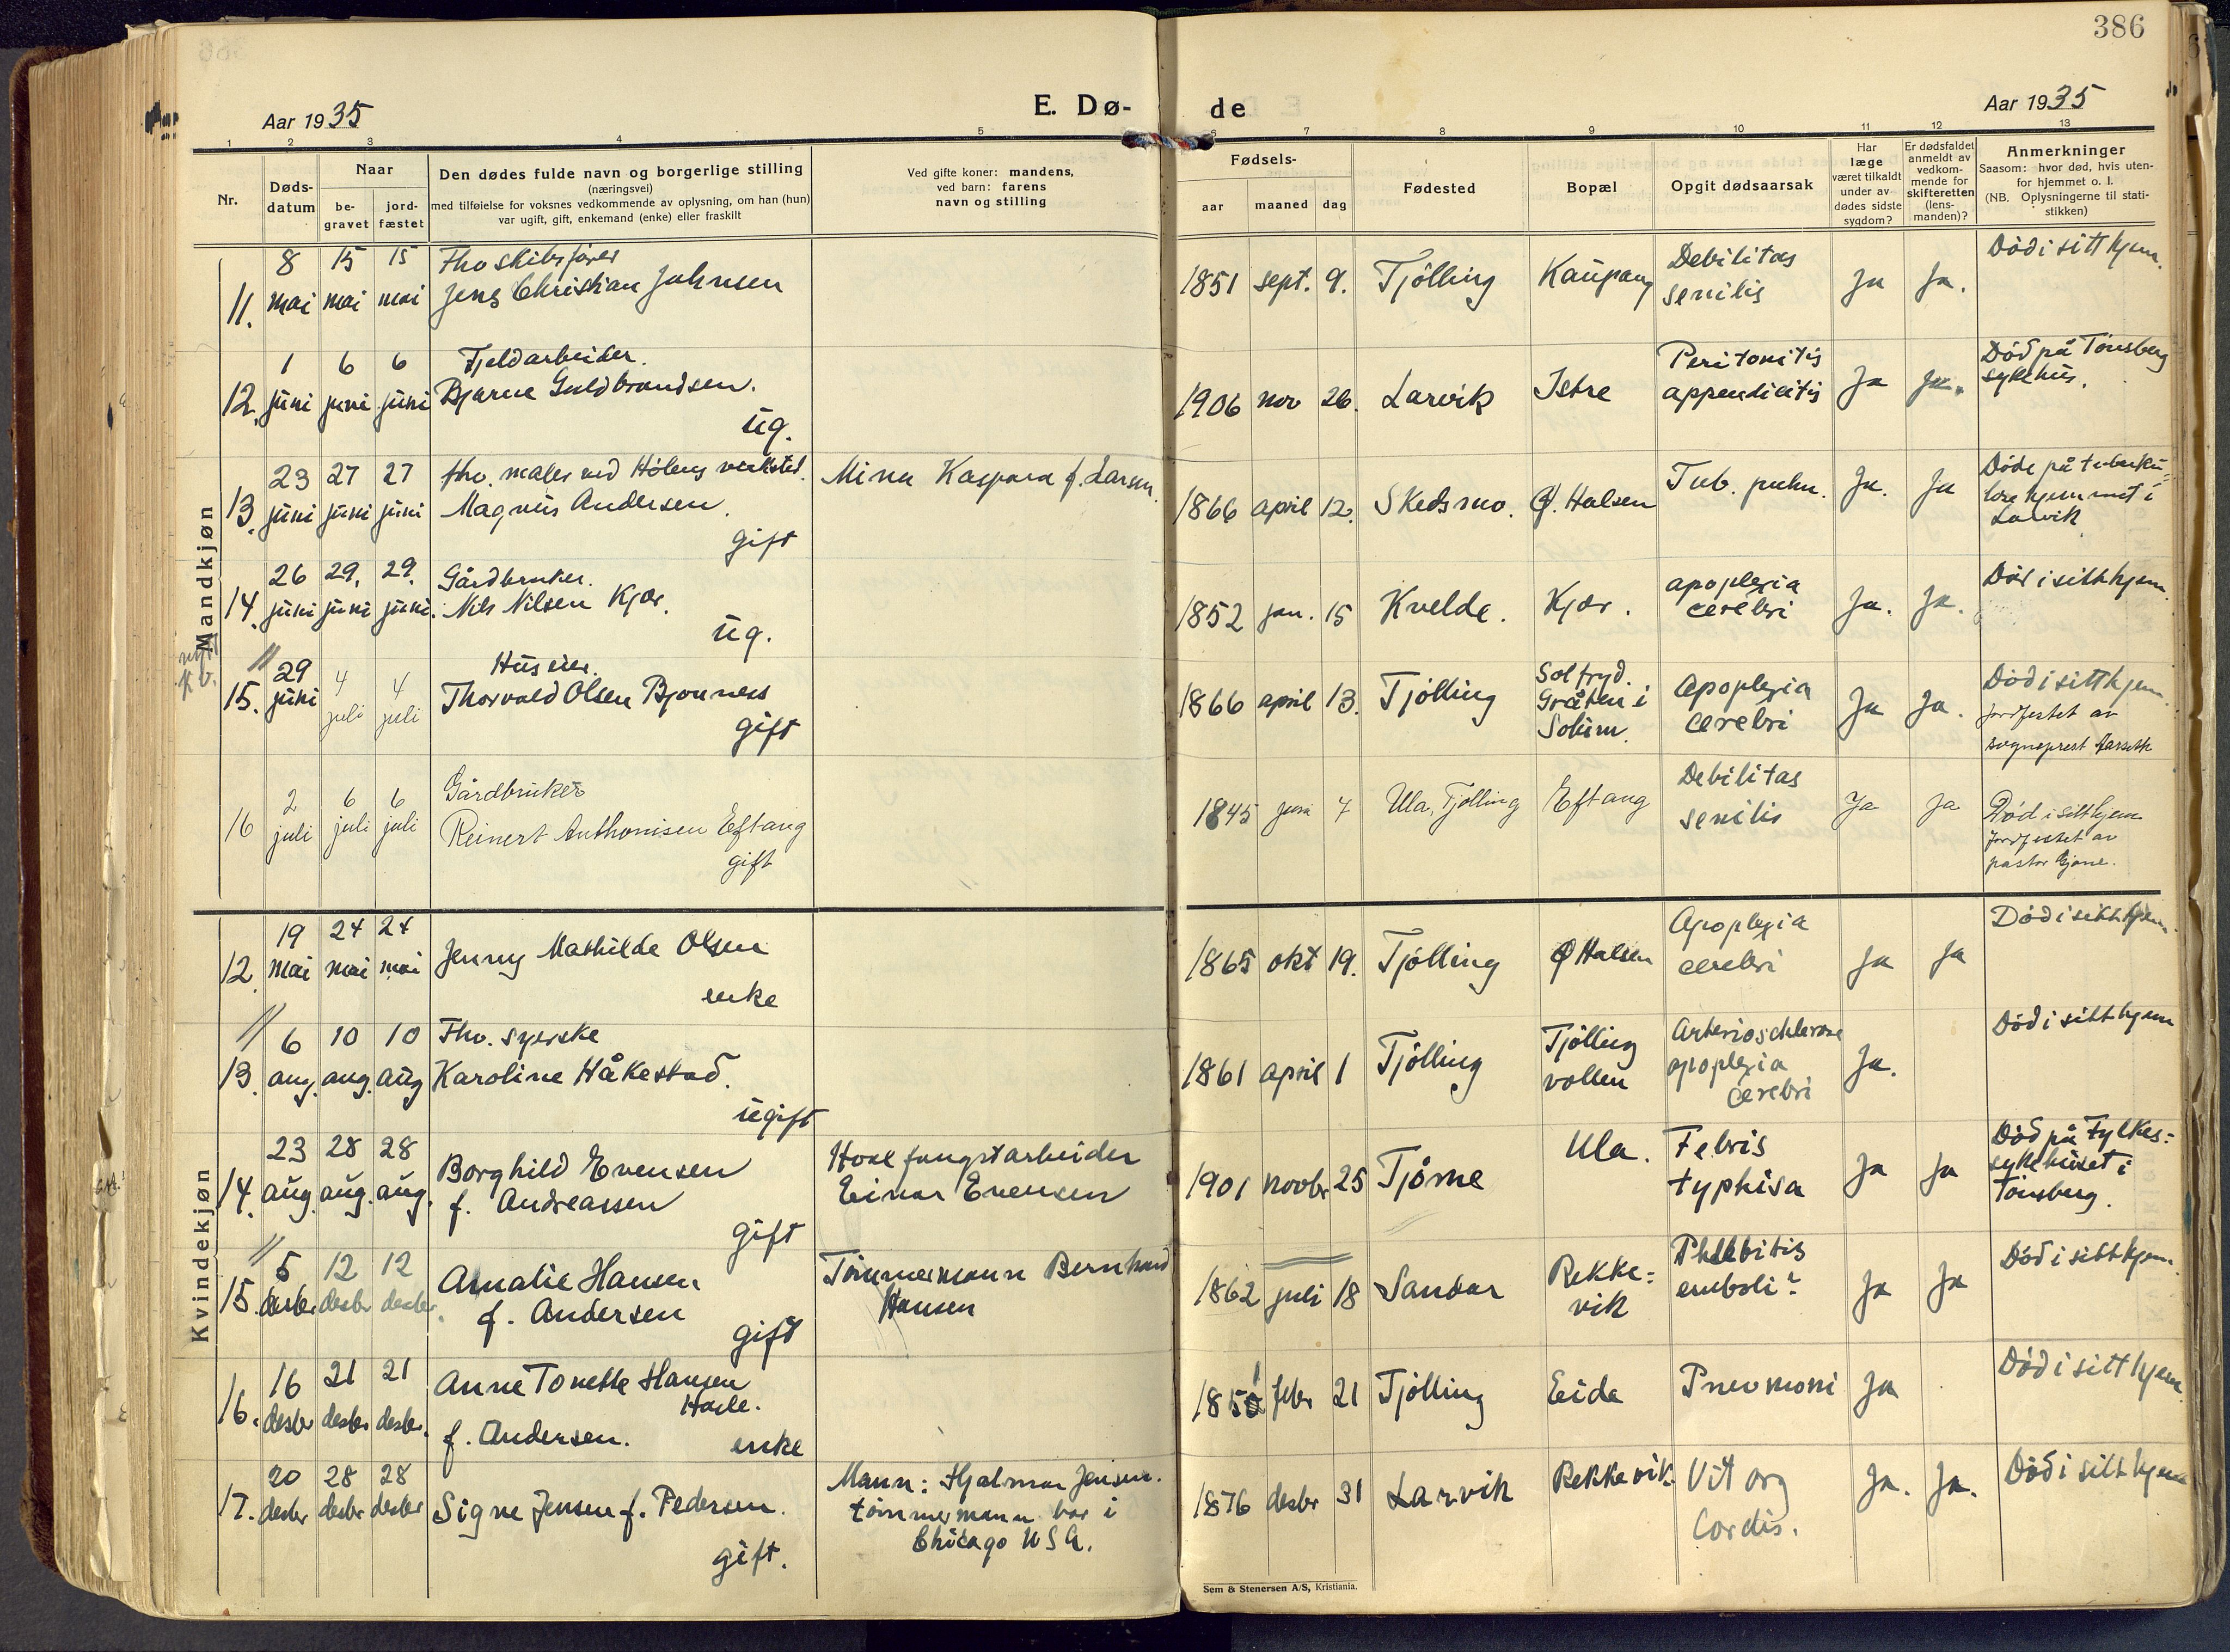 386
Aar 1935
E. Dø-
de
Aar 1935
1 2 3 4 5 6 7 8 9 10 11 12 13
Nr.
Døds-
datum
Naar
be-
gravet
jord-
fæstet
Den dødes fulde navn og borgerlige stilling
(næringsvei)
med tilføielse for voksnes vedkommende av oplysning, om han (hun)
var ugift, gift, enkemand (enke) eller fraskilt
Ved gifte koner: mandens,
ved barn: farens
navn og stilling
Fødsels-
aar maaned dag
Fødested
Bopæl
Opgit dødsaarsak
Har
læge
været tilkaldt
under av-
dødes sidste
sygdom?
Er dødsfaldet
anmeldt av
vedkom-
mende for
skifteretten
(lens-
manden)?
Anmerkninger
Saasom: hvor død, hvis uten-
for hjemmet o. l.
(NB. Oplysningerne til stati-
stikken)
Mandkjøn
11. 8 mai 15 mai 15 mai
Fhv skibsfører
Jens Christian Johnsen
1851 sept. 9. Tjölling Kaupang
Debilitas
senilis
Ja Ja.
Död i sitt hjem.
12. 1 juni 6 juni 6 juni
Fjeldarbeider.
Bjarne Guldbrandsen.
ug.
1906 nov 26. Larvik Istre
Peritonitis
appendicitis
Ja Ja.
Död på Tönsberg
sykehus.
13. 23 juni 27 juni 27 juni
fhv. maler ved Hölens verksted.
Magnus Andersen.
gift
Mina Kaspara f. Larsen.
1866 april 12. Skedsmo. Ø. Halsen
Tub. pulm.
Ja. Ja
Döde på tuberku-
losehjemmet i
Larvik
14. 26 juni 29. juni 29. juni.
Gårdbruker.
Nils Nilsen Kjær.
ug.
1852 jan. 15 Kvelde. Kjær.
apoplexia
cerebri
Ja. Ja.
Död i sitt hjem.
15. 29 juni 4 juli 4 juli
Huseier.
Thorvald Olsen Bjønness
gift
1866 april 13. Tjölling
Solfryd.
Gråten i
Solum.
Apoplexia
cerebri
Ja Ja.
Död i sitt hjem.
Jordfestet av
sogneprest
16 2 juli 6 juli 6 juli
Gårdbruker
Reinert Anthonisen Eftang
gift
1845 juni 7 Ula, Tjølling Eftang
Debilitas
senilis
Ja Ja
Død i sitt hjem
Jordfestet av
pastor
Kvindekjøn
12. 19 mai 24 mai 24 mai
Jenny Mathilde Olsen
enke
1865 okt 19. Tjölling Ø Halsen
Apoplexia
cerebri
Ja Ja
Död i sitt hjem.
13. 6 aug. 10 aug. 10 aug
Fhv. syerske
Karoline Håkestad.
ugift
1861 april 1 Tjölling
Tjölling
vollen
Arterioschlerose
apoplexia
cerebri
Ja.
Död i sitt hjem
14. 23 aug. 28 aug. 28 aug.
Borghild Evensen
f. Andreassen
gift
Hvalfangstarbeider
Einar Evensen
1901 novbr 25 Tjöme Ula.
Febris
typhisa
Ja Ja
Död på Fylkes-
sykehuset i
Tönsberg.
15. 5 desbr 12 desbr 12 desbr.
Amalie Hansen
f. Andersen
gift
Tömmermann Bernhard
Hansen
1862 juli 18 Sandar
Rekke-
vik
Phlebitis
emboli?
Ja Ja
Död i sitt hjem.
16. 16 desbr 21 desbr 21 desbr.
Anne Tonette Hansen
Hasle.
f. Andersen.
enke
1851 febr 21 Tjölling Eida
Pneumoni
Ja
Död i sitt hjem
17. 20 desbr 28 desbr 28 desbr
Signe Jensen f. Pedersen.
gift.
Mann: Hjalmar Jensen.
tömmermann bor i
Chicago USA.
1876 desbr 31 Larvik Rekkevik.
Vit org
Cordis.
Ja. Ja.
Död i sitt hjem
Sem & Stenersen A/S, Kristiania.